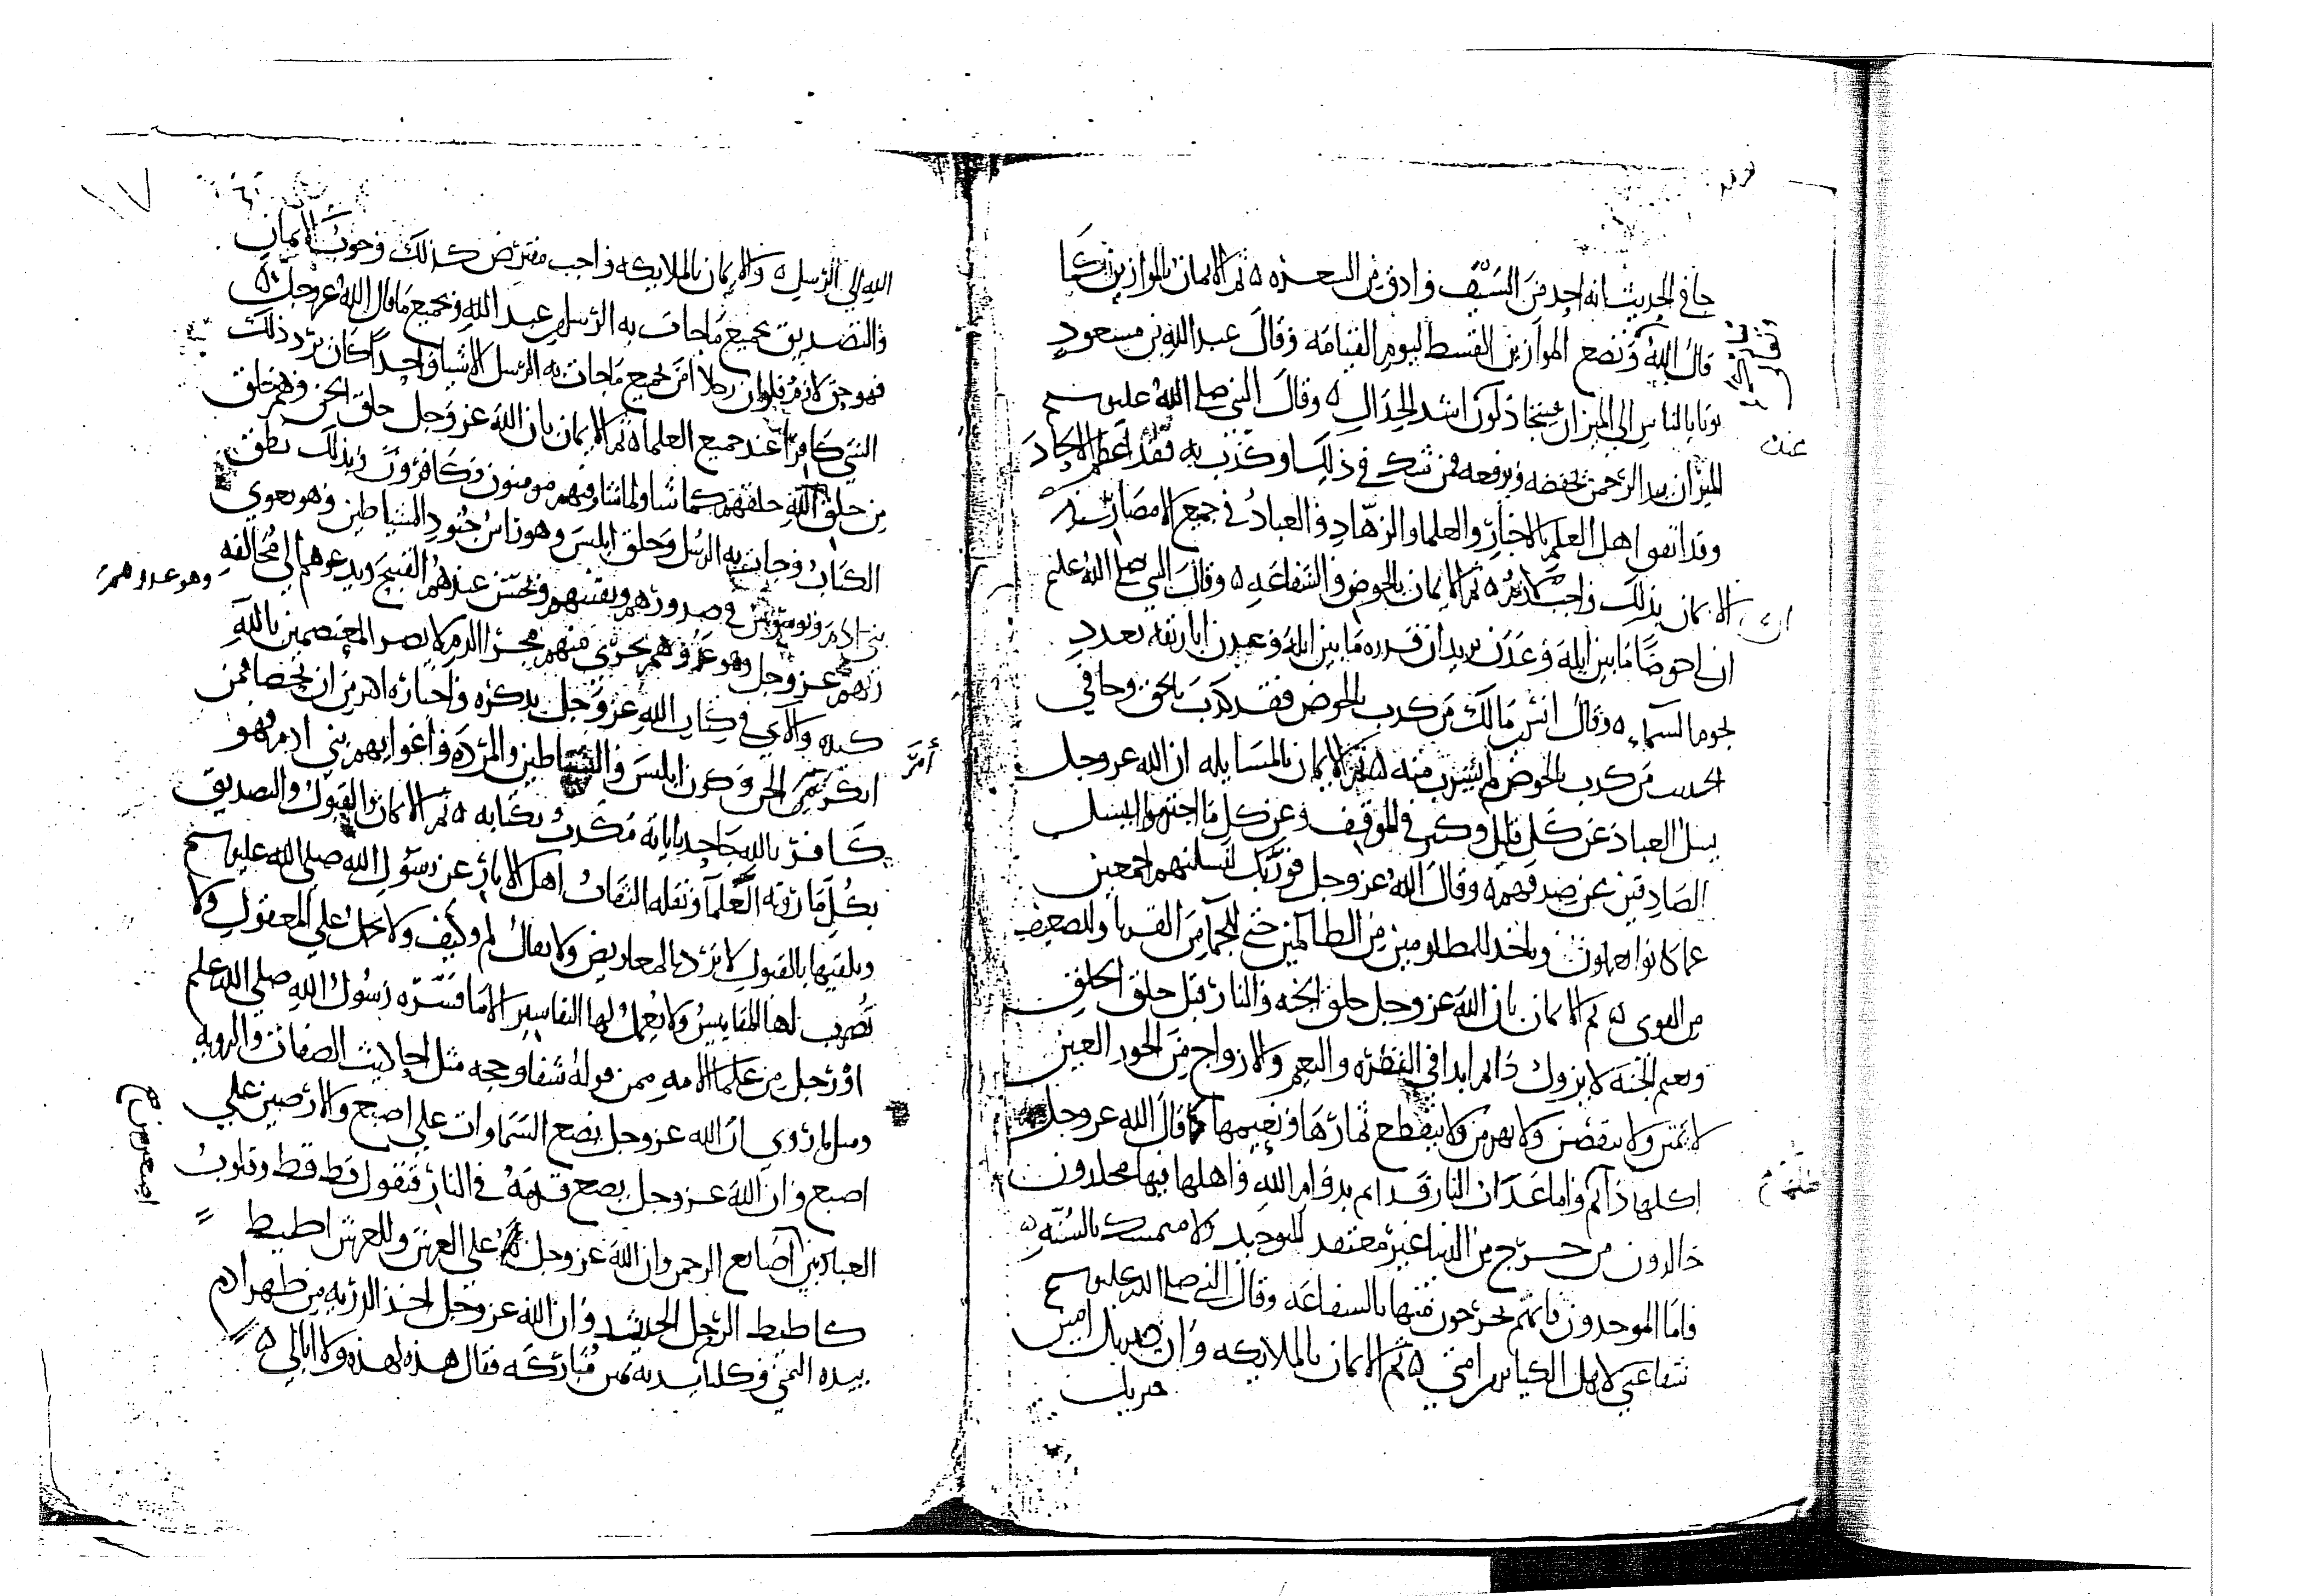 جا في الحديث انه احد من السيف وادق من الشعره ٥ ثم الايمان بالموازين كما
قال الله ونضع الموازين القسط ليوم القيامه وقال عبد الله بن مسعود
يوتا بالناس الي الميزان فيتجادلون اشد الجدال ٥ وقال النبي صلى الله عليه وسلم
الميزان بيد الرحمن يخفضه ويرفعه فمن شك في ذلك او كذب به فقد اعظم الالحاد
وقد اتفق اهل العلم بالاخبار والعلما والزهاد والعباد في جميع الامصار
الايمان بذلك واجب لازم ٥ ثم الايمان بالحوض والشفاعه ٥ وقال النبي صلى الله عليه وسلم
ان لي حوضا ما بين ايله وعدن يريد ان قدره ما بين ايله وعدن اباريقه بعدد
نجوم السماء ٥ وقال انس بن مالك من كذب بالحوض فقد كذب بالحق وجا في
الحديث من كذب بالحوض لم يشرب منه ٥ ثم الايمان بالمسايله ان الله عز وجل
يسل العباد عن كل قليل وكثير في الموقف وعن كل ما اجترموا ليسل
الصادقين عن صدقهم ٥ وقال الله عز وجل فوربك لنسلنهم اجمعين
عما كانوا يعملون وياخذ للمظلومين من الظالمين حتي للجما من القرنا وللضعيف
من القوي ٥ ثم الايمان بان الله عز وجل خلق الجنه والنار قبل خلق الخلق
ونعيم الجنه لا يزول دايم ابدا في النضره والنعيم والازواج من الحور العين
لا يمتن ولا ينقصن ولا يهرمن ولا ينقطع ثمارها ونعيمها كما قال الله عز وجل
اكلها دايم واما عذاب النار فدايم بدوام الله واهلها فيها مخلدون
خالدون من خرج من الدنيا غير معتقد للتوحيد ولا متمسك بالسنه ٥
فاما الموحدون فانهم يخرجون منها بالشفاعه وقال النبي صلى الله عليه وسلم
شفاعتي لاهل الكباير من امتي ٥ ثم الايمان بالملايكه وان جبريل امين
جبريل
الله الي الرسل ٥ والايمان بالملايكه واجب مفترض كذلك وجوب الايمان
والتصديق بجميع ما جات به الرسل من عند الله وبجميع ما قال الله عز وجل ٥
فهو حق لازم فلو ان رجلا امن بجميع ما جات به الرسل الا شيا واحدا كان برد ذلك
الشي كافرا عند جميع العلما ٥ ثم الايمان بان الله عز وجل خلق الجن وهم خلق
من خلق الله خلقهم كما شا ولما شا وفيهم مومنون وكافرون وبذلك نطق
الكتاب وجات به الرسل وخلق ابليس وهو راس جنود الشياطين وهو يغوي
بني ادم ويوسوس في صدورهم ويفتنهم ويحسن عندهم القبيح ويدعوهم الي مخالفه
وهو عدو لهم
ربهم عز وجل وهو عدوهم يجري منهم مجرا الدم لا يضر المعتصمين بالله
كيده والاي في كتاب الله عز وجل بذكره واخباره اكثر من ان تحصا فمن
انكر امر الجن وكون ابليس والشياطين والمرده واغوايهم بني ادم فهو
أمر
كافر بالله جاحد باياته مكذب بكتابه ٥ ثم الايمان والقبول والتصديق
بكل ما روته العلما ونقله الثقات اهل الاثار عن رسول الله صلى الله عليه وسلم
وتلقيها بالقبول لا ترد بالمعاريض ولا يقال لم وكيف ولا تحمل علي المعقول ولا
تضرب لها المقاييس ولا يعمل لها التفاسير الا ما فسره رسول الله صلى الله عليه وسلم
او رجل من علما الامه ممن قوله شفا وحجه مثل احاديث الصفات والرويه
ومثل ما روي ان الله عز وجل يضع السماوات علي اصبع والارضين علي
اصبع وان الله عز وجل يضع قدمه في النار فتقول قط قط وقلوب
العباد بين اصابع الرحمن وان الله عز وجل علي العرش وللعرش اطيط
كاطيط الرحل الجديد وان الله عز وجل اخذ الذريه من ظهر ادم
بيده اليمني وكلتا يديه يمين مباركه فقال هذه لهذه ولا ابالي ٥